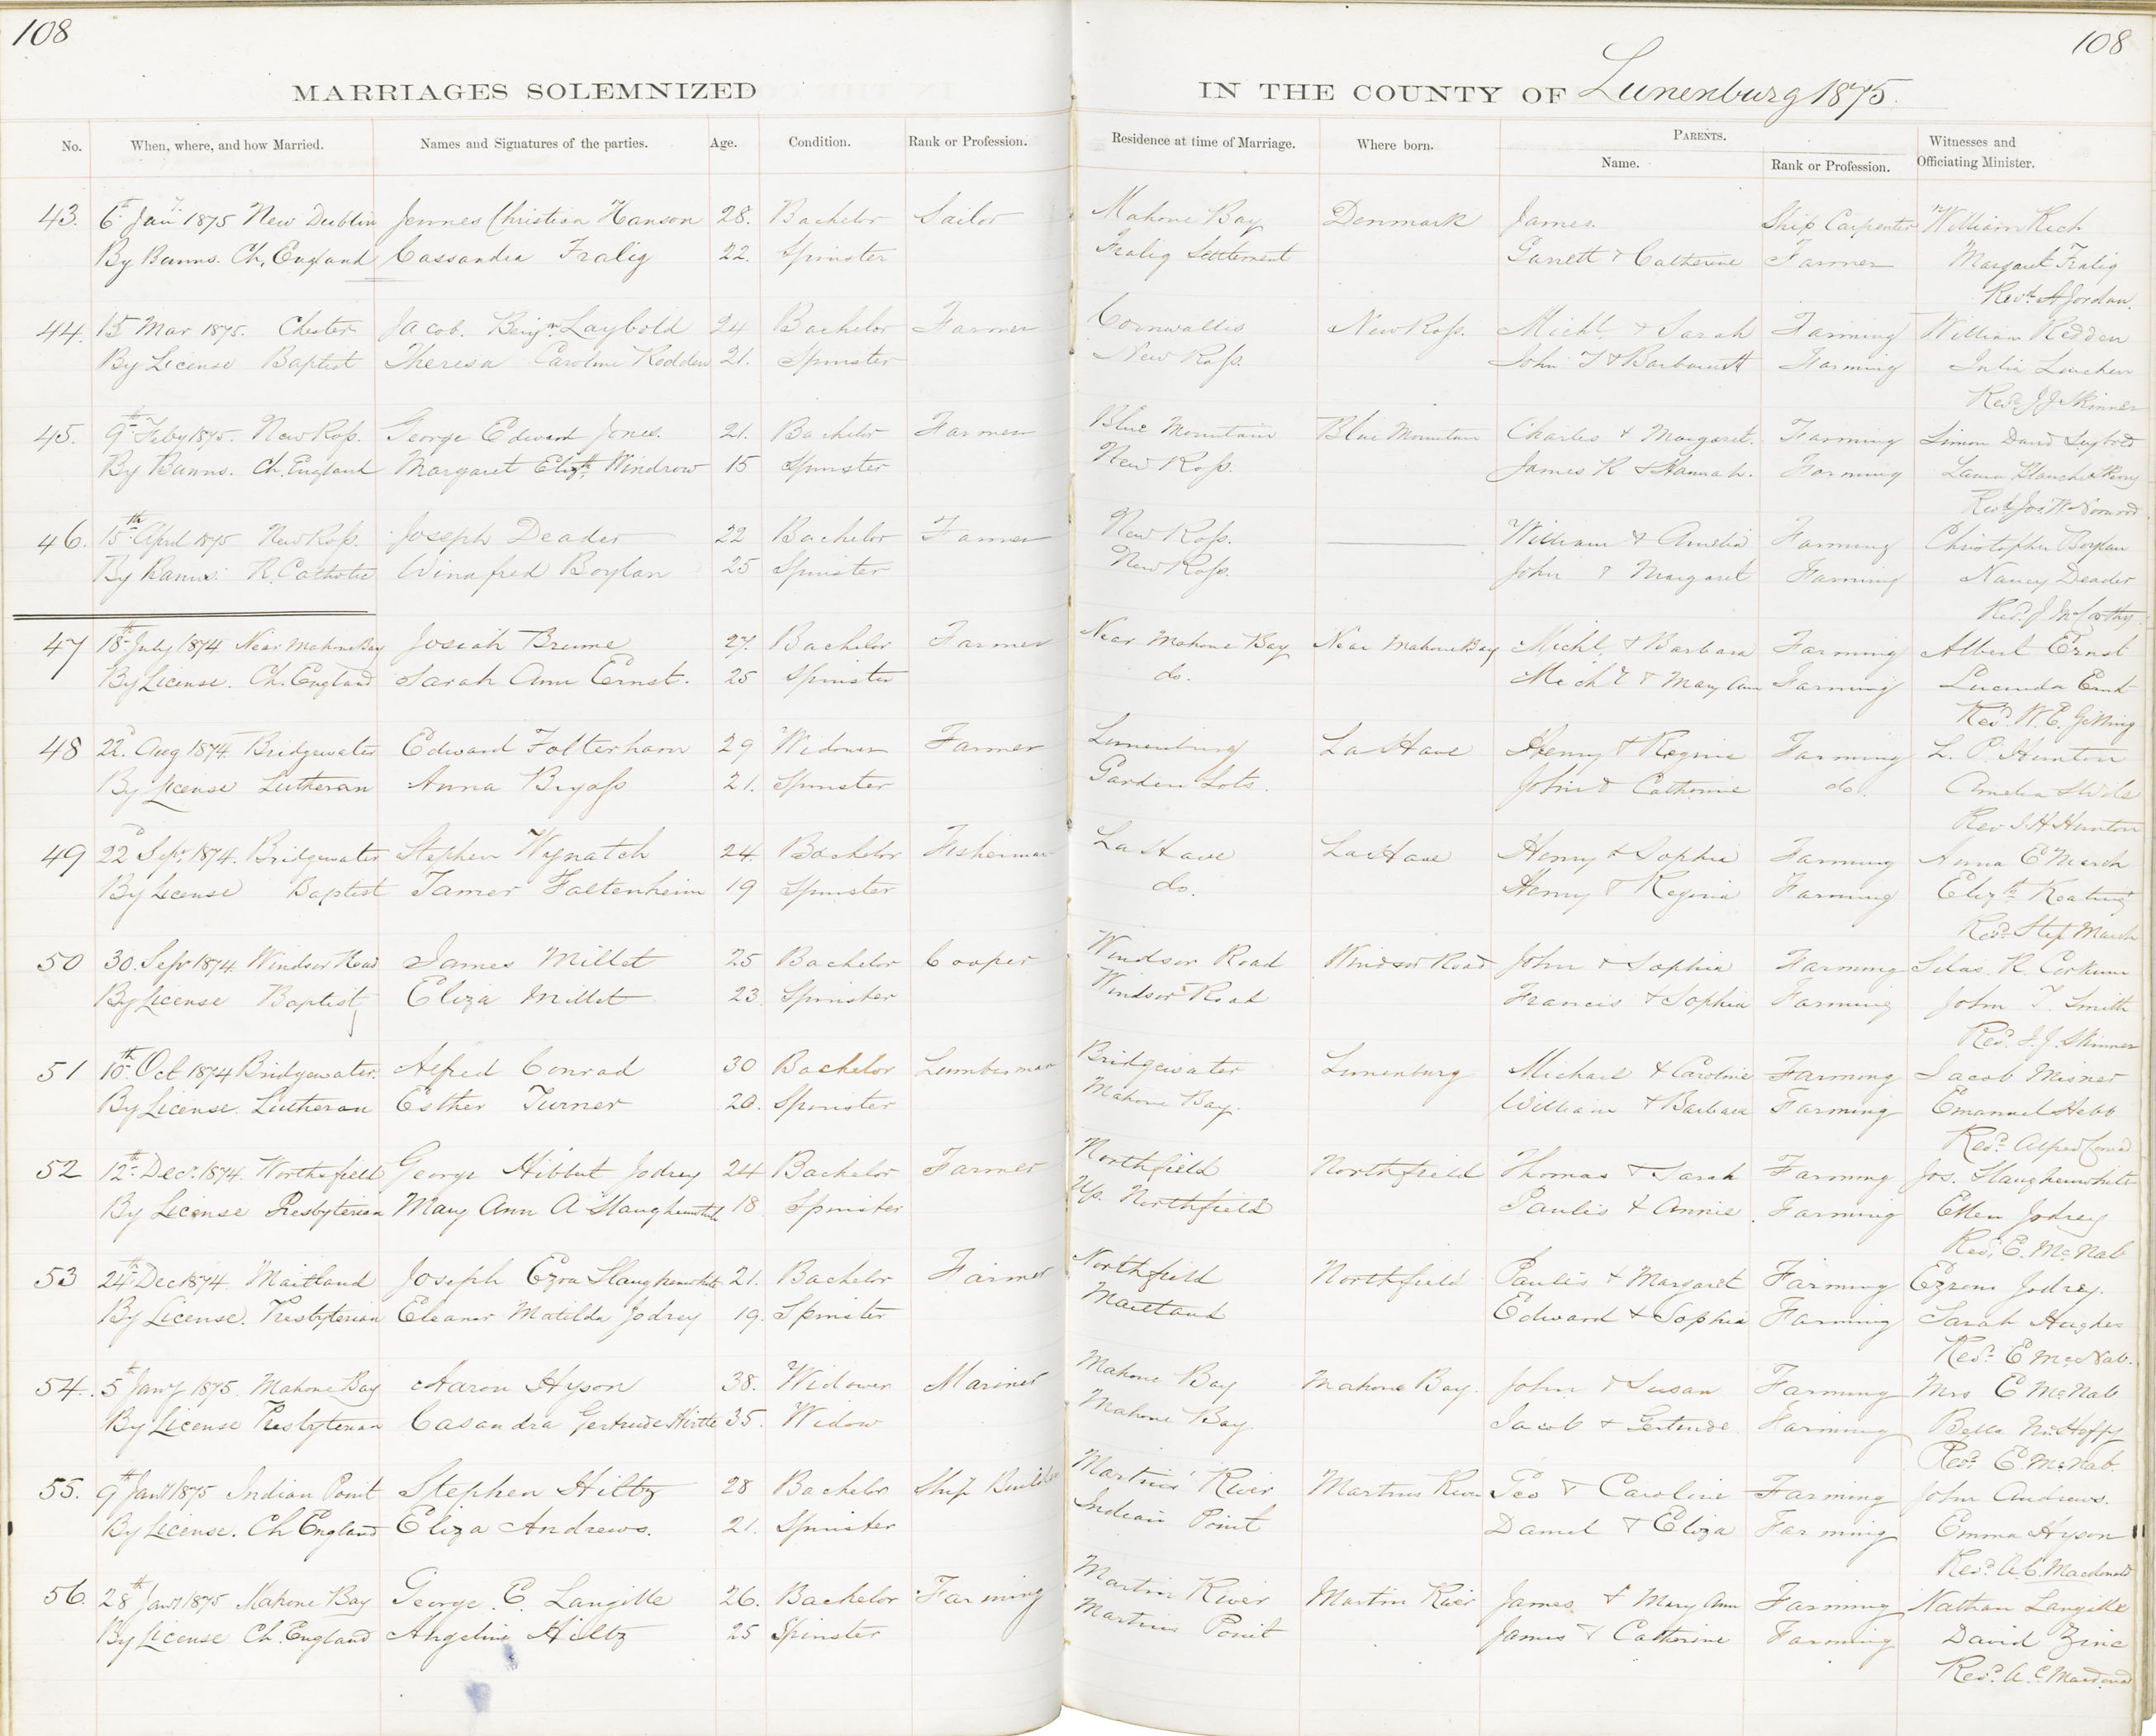 108
108
MARRIAGES SOLEMNIZED IN THE COUNTY OF Lunenburg 1875.
No. When, where, and how Married. Names and Signatures of the parties. Age. Condition. Rank or Profession. Residence at time of Marriage. Where born. PARENTS. Name. Rank or Profession. Witnesses and Officiating Minister.
43. 6th Jany 1875 New Dublin Jennes Christian Hanson 28. Bachelor Sailor Mahone Bay Denmark James. Ship Carpenter Wm William Rich
By Banns. Ch. England Cassandra Fralig 22. Spinster Fralig Settlement Garrett & Catherine Farmer Margaret Fralig
Revd A Jordan.
44. 15 Mar 1875. Chester Jacob. Benjn Laybold 24 Bachelor Farmer Cornwallis New Ross. Michl. & Sarah Farming William Redden
By License Baptist Theresa Caroline Redden 21. Spinster New Ross. John T & Farming Julia
Revd J J Skinner
45. 9th Feby 1875. New Ross. George Edward Jones. 21. Bachelor Farmer Blue Mountain Blue Mountain Charles & Margaret. Farming Simon David
By Banns. Ch. England Margaret Elizth Windrow 15 Spinster New Ross. James R & Hannah. Farming Laura Blanche
Revd
46. 15th April 1875 New Ross. Joseph Deader 22 Bachelor Farmer New Ross. William & Amelia Farming Christopher Boylan
By Banns. R. Catholic Winafred Boylan 25 Spinster New Ross. John & Margaret Farming Nancy Deader
Revd. J McCarthy
47 18th July 1874 Near Mahone Bay Josiah Breume 27. Bachelor Farmer Near Mahone Bay Near Mahone Bay Michl. & Barbara Farming Albert Ernst
By License. Ch. England Sarah Ann Ernst. 25 Spinster do. Michl & Mary Ann Farming Lucinda Ernst
Revd. W. E. Gilling
48 22d Aug 1874. Bridgewater Edward Folterham 29 Widower Farmer Lunenburg La Have Henry & Regina Farming L. P. Hunton
By License Lutheran Anna 21. Spinster Garden Lots. John & Catherine do. Amelia Wile
Rev J. H Hunton
49 22d Sept. 1874. Bridgewater Stephen Wynatch 24. Bachelor Fisherman La Have La Have Henry & Sophia Farming Anna E March
By License Baptist Tamer Faltenheim 19 Spinster do. Henry & Regina Farming Elizth Keating
Revd. Step March
50 30. Sept 1874. Windsor Road James Millet 25 Bachelor Cooper Windsor Road Windsor Road John & Sophia Farming Silas R. Corkum
By License Baptist Eliza Millet 23. Spinster Windsor Road Francis & Sophia Farming John T. Smith
Revd. J. J. Skinner
51 10th Oct 1874 Bridgewater. Alfred Conrad 30 Bachelor Lumberman Bridgewater Lunenburg Michael & Caroline Farming Jacob Misner
By License. Lutheran Esther Turner 20. Spinster Mahone Bay. William & Barbara Farming Emanuel Hebb
Revd. Alfred Conrad
52 12th Decr. 1874. Northfield George Hibbert Jodrey 24 Bachelor Farmer Northfield Northfield Thomas & Sarah Farming Jos. Slaughenwhite
By License Presbyterian Mary Ann A Slaughenwhite 18. Spinster Up. Northfield Paulis & Annie. Farming Ellen Jodrey
Revd. E. McNab
53 24th Dec 1874. Maitland Joseph Ezra Slaughenwhite 21. Bachelor Farmer Northfield Northfield Paulis & Margaret Farming Ezrom Jodrey.
By License. Presbyterian Eleanor Matilda Jodrey 19. Spinster Maitland Edward & Sophia Farming Sarah Hughes
Revd. E McNab.
54. 5th Jany 1875. Mahone Bay Aaron Hyson 38. Widower Mariner Mahone Bay Mahone Bay. John & Susan Farming Mrs E McNab
By License Presbyterian Casandra Gertrude Hirtle 35. Widow Mahone Bay. Jacob & Gertrude. Farming Bella
Revd. E McNab.
55. 9th Jany 1875 Indian Point Stephen Hiltz 28 Bachelor Ship Builder Martins' River Martins River Geo & Caroline Farming John Andrews.
By License. Ch England Eliza Andrews. 21. Spinster Indian Point Daniel & Eliza Farming Emma Hyson
Revd. A. C. Macdonald
56. 28th Jany 1875 Mahone Bay George. E. Langille 26. Bachelor Farming Martin River Martin River James & Mary Ann Farming Nathan Langille
By License Ch. England Angeline Hiltz 25 Spinster Martins Point James & Catherine Farming David Zinc
Revd. A. C. Macdonald